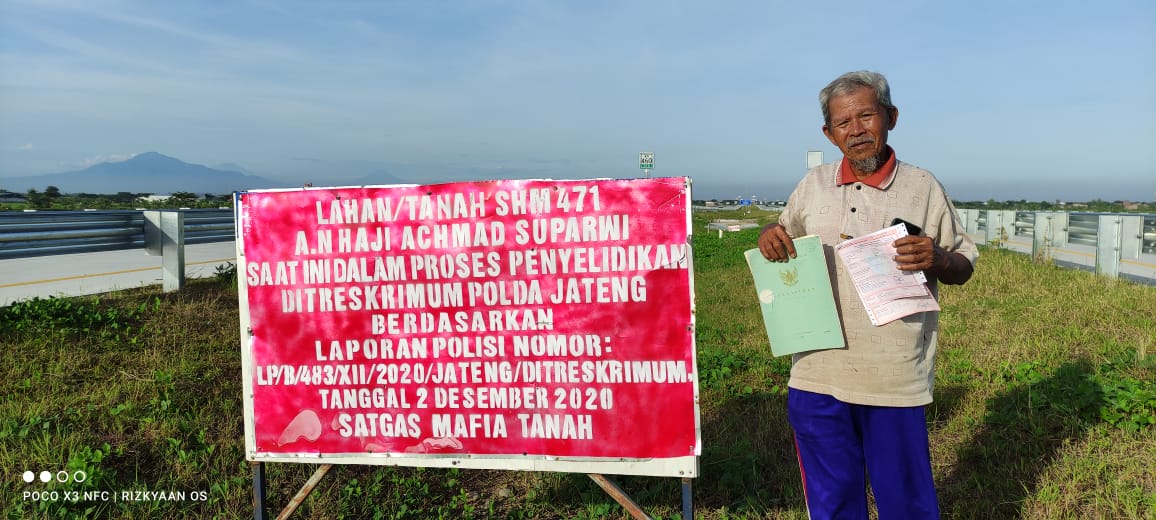 LAHAN/TANAH SHM 471
A.N HAJI ACHMAD SUPARWI
SAAT INI DALAM PROSES PENYELIDIKAN
DITRESKRIMUM POLDA JATENG
BERDASARKAN
LAPORAN POLISI NOMOR:
LP/B/483/XII/2020/JATENG/DITRESKRIMUM.
TANGGAL 2 DESEMBER 2020
SATGAS MAFIA TANAH
POCO X3 NFC | RIZKYAAN OS